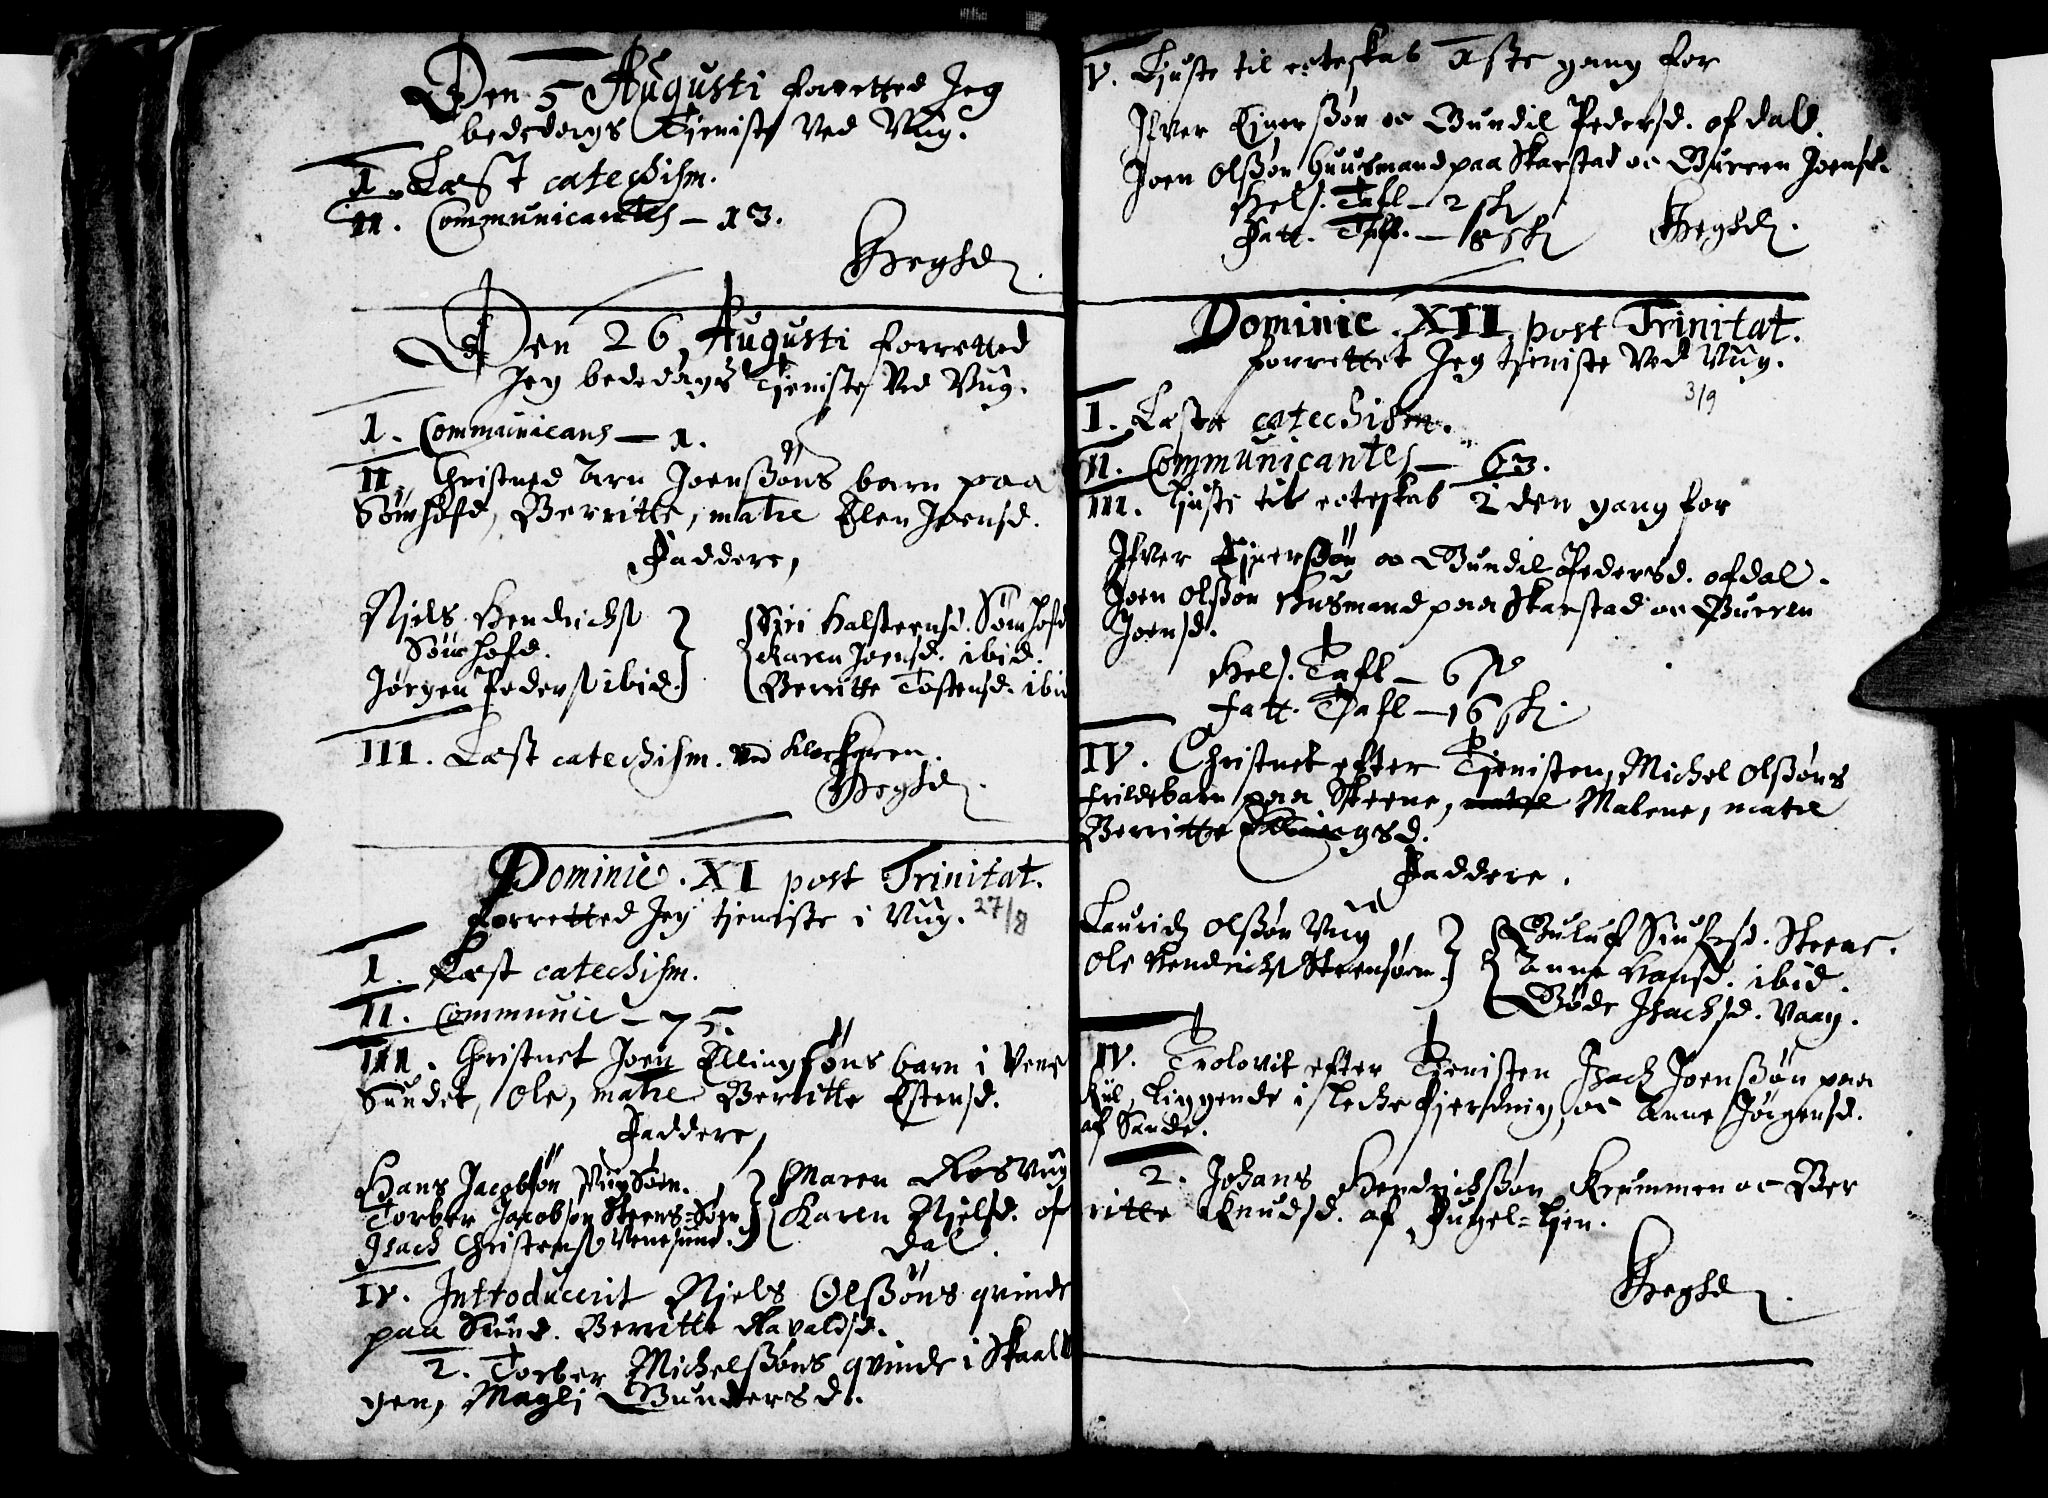 Den 5 Augusti forretted Jeg
bededags Tjeniste Ved Vug.
I. Læst catechism.
II. Communicantes – 13.
Heghd.
Den 26 Augusti forretted
Jeg bededags Tjeniste Ved Vug.
I. Communicans – 1.
II. Christned Arn Joenßøns barn paa
Sømhofd, Berritte, matre Elen Joensd.
Faddere,
Njels Hendrichs
Sømhofd.
Jørgen Peders ibid.
Siri Halstensd. Sømhofd
Karen Joensd. ibid.
Berritte Tostensd. ibid
III. Læst catechism. ved Klockeren.
Heghd.
Dominic. XI post Trinitat.
forretted Jeg tjeniste i Vug. 27/8
I. Læst catechism.
II. Communic – 75.
III. Christnet Joen Ellingsøns barn i Vene
Sundet, Ole, matre Berritte Estensd.
Faddere,
Hans Jacobsøn Vug Søen.
Torber Jacobsøn Steens-Søen
Isach Christens Venesund.
Maren Aos Vug
Karen Njelsd. of
dal.
IV. Introducerit Njels Olßøns qvinde
paa Sund. Berritte Havaldsd.
2. Torber Michelßøns qvinde i Skaal
gen, Magli Gundersd.
V. Liuste til ecteskab 1ste gang for
Ifver Ejnerßøn oc Gundil Pedersd. ofdal.
Joen Olßøn Huusmand paa Skarstad oc Gurren Joensd.
Hels. Tafl – 2 sk
Fatt. Tafl. – 8 sk
Heghd.
Dominic. XII post Trinitat.
forrettet Jeg tjeniste Ved Vug.
3/9
I. Læste catechism.
II. Communicantes – 63.
III. Liuste til ecteskab 2 den gang for
Ifver Ejnerßøn oc Gundil Pedersd. ofdal.
Joen Olßøn Husmand paa Skarstad oc Gurren
Joensd.
Hels. Tafl – 6 sk
Fatt. Tafl – 16 sk.
IV. Christnet efter Tjenisten, Michel Olßøns
frildebarn paa Steene, Malene, matre
Berritte Ellingsd.
Faddere.
Lauridz Olßøn Vug
Ole Hendrichs Steensøen
Guluf Siufrsd. Steene.
Anne Hansd. ibid.
Gøde Isachsd. Vaag.
IV. Trolovit efter Tjenisten Isach Joenßøn paa
liggende i Lecke fjerdning, oc Anne Jørgensd.
af Sande.
2. Johans Hendrichßøn Krummen oc Ber
ritte Knudsd. af Fugel-tjen.
Heghd.